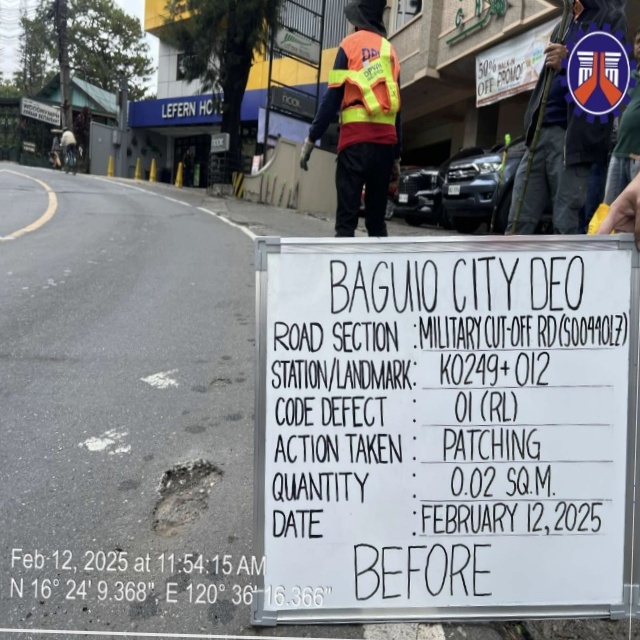 LEFERN HO
NOOK
50%
OFF PROMO
BAGUIO CITY DEO
ROAD SECTION : MILITARY CUT-OFF RD (S00440LZ)
STATION/LANDMARK : K0249+012
CODE DEFECT : 01 (RL)
ACTION TAKEN : PATCHING
QUANTITY : 0.02 SQ.M.
DATE : FEBRUARY 12, 2025
BEFORE
Feb 12, 2025 at 11:54:15 AM
N 16° 24' 9.368", E 120° 36' 16.366"